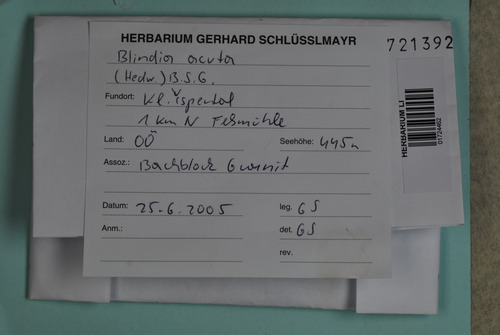 HERBARIUM GERHARD SCHLÜSSLMAYR
721392
Blindia acuta
(Hedw.) B.S.G.
Fundort: Kl. Yspertal
1 km N Felsmühle
Land: OÖ Seehöhe: 445m
Assoz.: Bachblock Granit
Datum: 25.6.2005 leg. GS
Anm.: det. GS
rev.
HERBARIUM LI
01724462